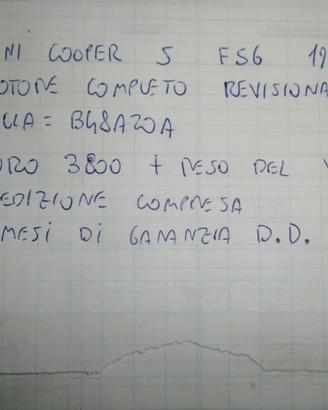 NI COOPER S F56 19
OTORE COMPLETO REVISIONA
GLIA = B48A20A
URO 3800 + RESO DEL V
EDIZIONE COMPRESA
MESI DI GARANZIA D.D.